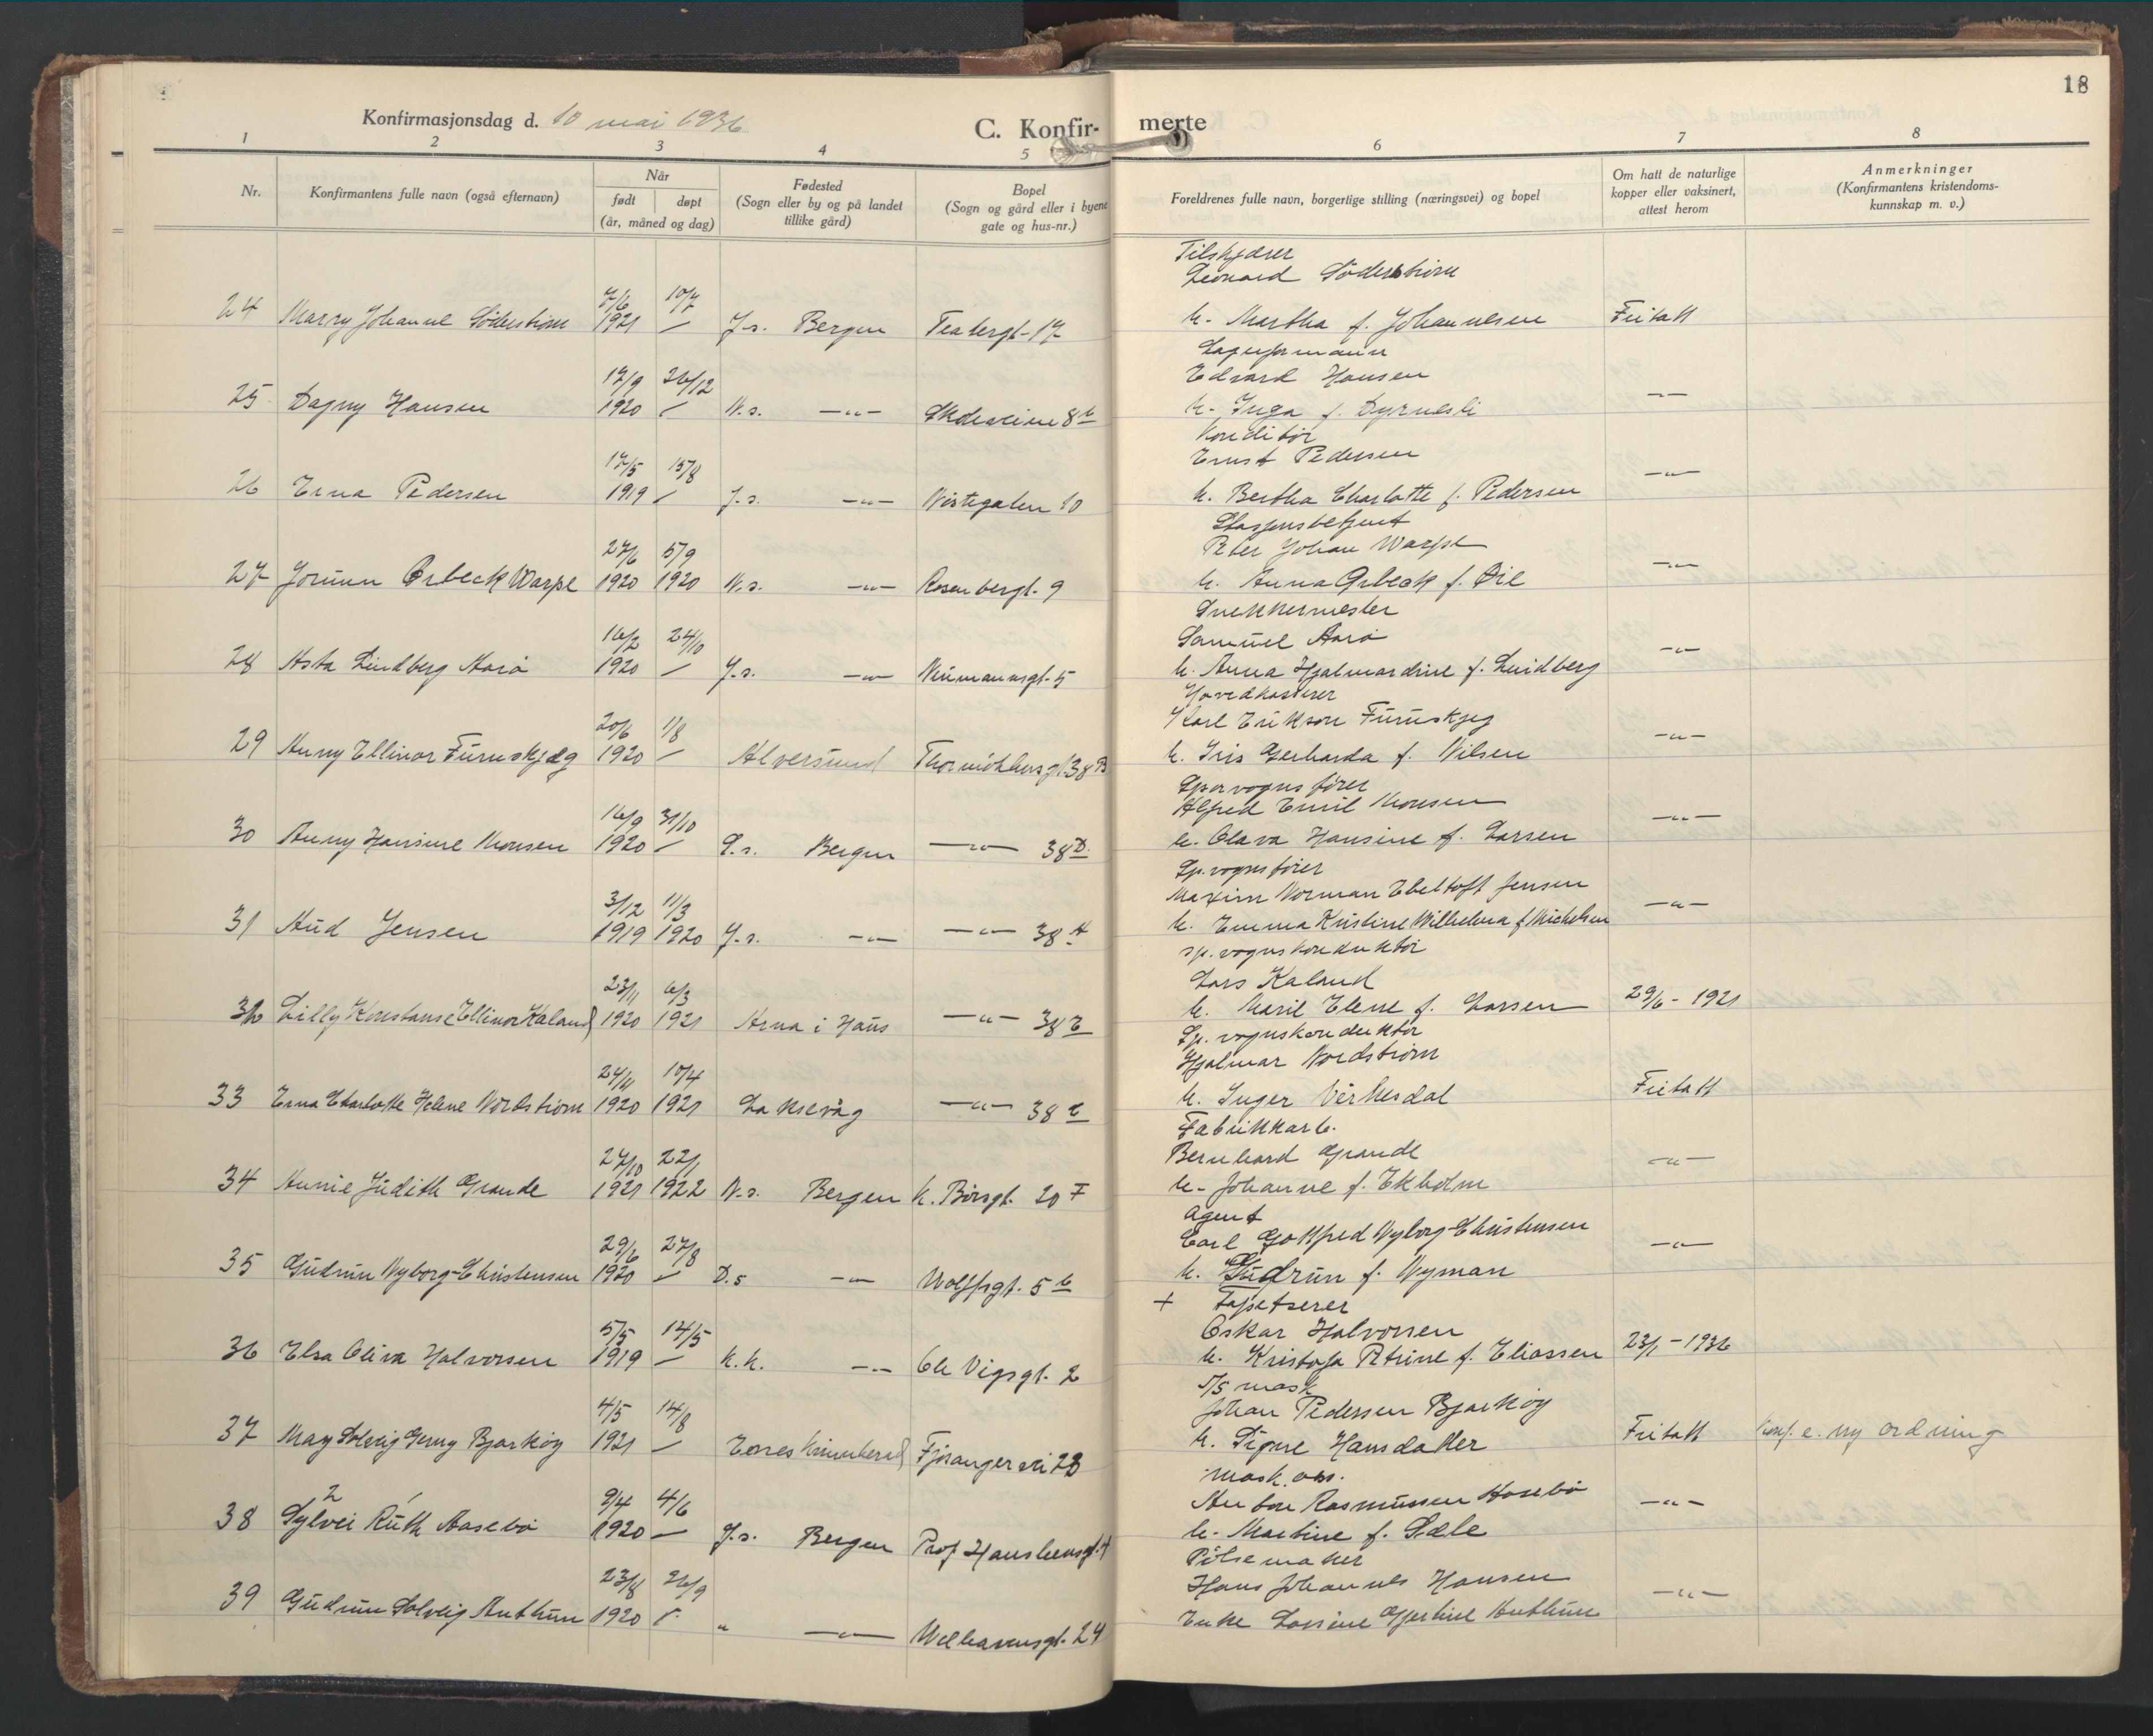 18
Konfirmasjonsdag d. 10 mai 1936
C. Konfir- merte
1 2 3 4 5 6 7 8
Nr.
Konfirmantens fulle navn (også efternavn)
Når
født døpt
(år, måned og dag)
Fødested
(Sogn eller by og på landet
tillike gård)
Bopel
(Sogn og gård eller i byene
gate og hus-nr.)
Foreldrenes fulle navn, borgerlige stilling (næringsvei) og bopel
Om hatt de naturlige
kopper eller vaksinert,
attest herom
Anmerkninger
(Konfirmantens kristendoms-
kunnskap m. v.)
Tilskjærer
Leonard Söderström
7/6 10/7
24 Marry Johanne Söderström 1921 — J.s. Bergen Teatergt. 17 h. Martha f. Johannesen Fritatt
Lagerformann
17/9 26/12 Edvard Hansen
25 Dagny Hansen 1920 — N.s. —"— 8b h. Inga f. Dyrnesli —"—
Konditor
17/5 15/8 Ernst Pedersen
26 Erna Pedersen 1919 — J.s. —"— Nistegaten 10 h. Bertha Charlotte f. Pedersen —"—
27/6 5/9 Peter Johan Warpe
27 Jorunn Orbeck Warpe 1920 1920 N.s. —"— Rosenbergt. 9 h. Anna Orbeck f. Öie —"—
Snekkermester
16/2 24/10 Samuel Aarö
28 Asta Lindberg Aarö 1920 — J.s. —"— Neumannsgt. 5 h. Anna Hjalmardine f. Lindberg —"—
Hovedkasserer
20/6 1/8 Karl Erikson Furuskjeg
29 Anny Ellinor Furuskjæg 1920 — Alversund Thormöhlensgt. 38 B h. Iris Gerharda f. Nilsen —"—
Sporvognsfører
16/9 31/10 Alfred Emil Monsen
30 Anny Hansine Monsen 1920 — S.s. Bergen —"— 38 D. h. Olava Hansine f. Larsen —"—
Sp.vognsfører
3/12 11/3 Maxim Norman Ebeltoft Jensen
31 Aud Jensen 1919 1920 J.s. —"— —"— 38 A h. Emma Kristine Wilhelma f. Michelsen —"—
sp.vognskonduktör
23/11 6/3 Lars Kaland
32 Lilly Konstanse Ellinor Kaland 1920 1921 Arna i Haus —"— 38 E h. Marie Elene f. Larsen 29/6 - 1921
Sp.vognskonduktör
24/11 10/4 Hjalmar Nordström
33 Erna Charlotte Helene Nordström 1920 1921 Laksevåg —"— 38 C h. Inger Virkesdal Fritatt
Fabrikkarb.
27/10 22/1 Bernhard Grande
34 Annie Judith Grande 1921 1922 N.s. Bergen K. Börsgt. 20 F h. Johanne f. Ekholm —"—
Agent
29/6 27/8 Carl Gottfred Nyborg-Christensen
35 Gudrun Nyborg-Christensen 1920 — D.s —"— Wolffsgt. 5 b h. Gudrun f. Nyman —"—
+ Tapetserer
5/5 14/5 Oskar Halvorsen
36 Elsa Oliva Halvorsen 1919 — K.k. —"— Ole Vigsgt. 2 h. Kristofa Petrine f. Eliassen 23/1 - 1936
D/S mask
4/5 14/8 Johan Pedersen Bjarköy
37 May Solveig Gerny Bjarköy 1921 — Fjösangervei 23 h. Signe Hansdatter Fritatt konf. e. ny ordning
mask. ass.
2
9/4 4/6 Anton Rasmussen Aasebö
38 Sylvei Ruth Aasebö 1920 — J.s. Bergen Prof. Hansteensgt. h. Martine f. Sæle —"—
Pölsemaker
23/8 26/9 Hans Johannes Hansen
39 Gudrun Solveig Anthun 1920 — " —"— Welhavensgt. 24 Enke Lovine Gjertine Anthun —"—